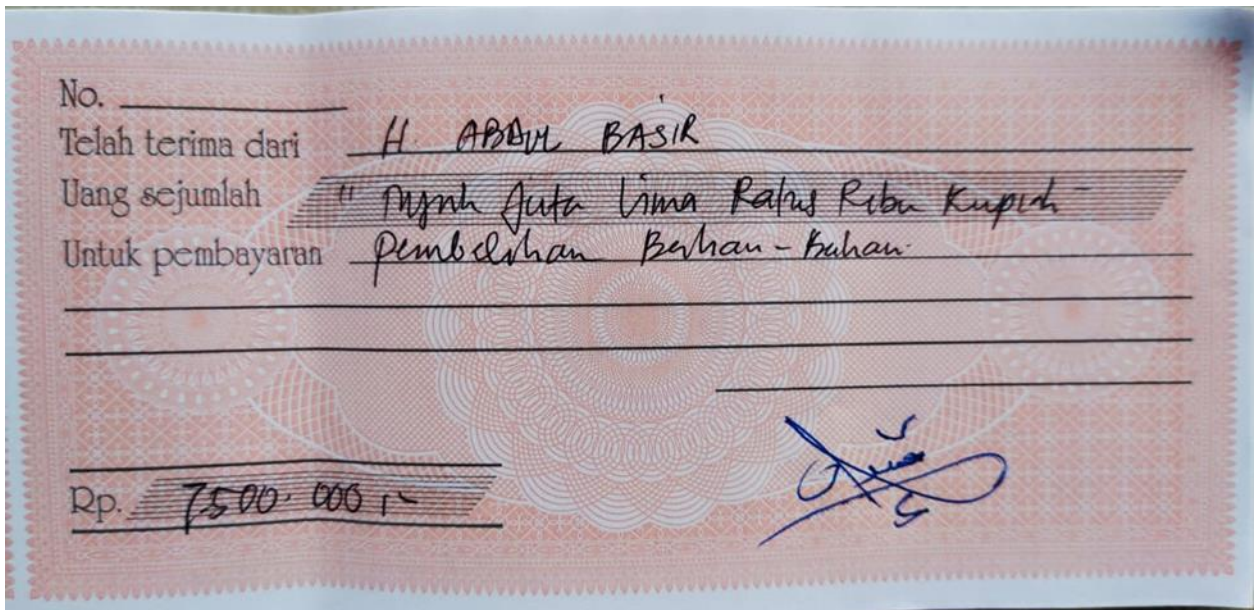 No.
Telah terima dari H. ABDUL BASIR
Uang sejumlah " Tujuh Juta Lima Ratus Ribu Rupiah -
Untuk pembayaran Pembelihan Bahan - Bahan.
Rp. 7500.000,-